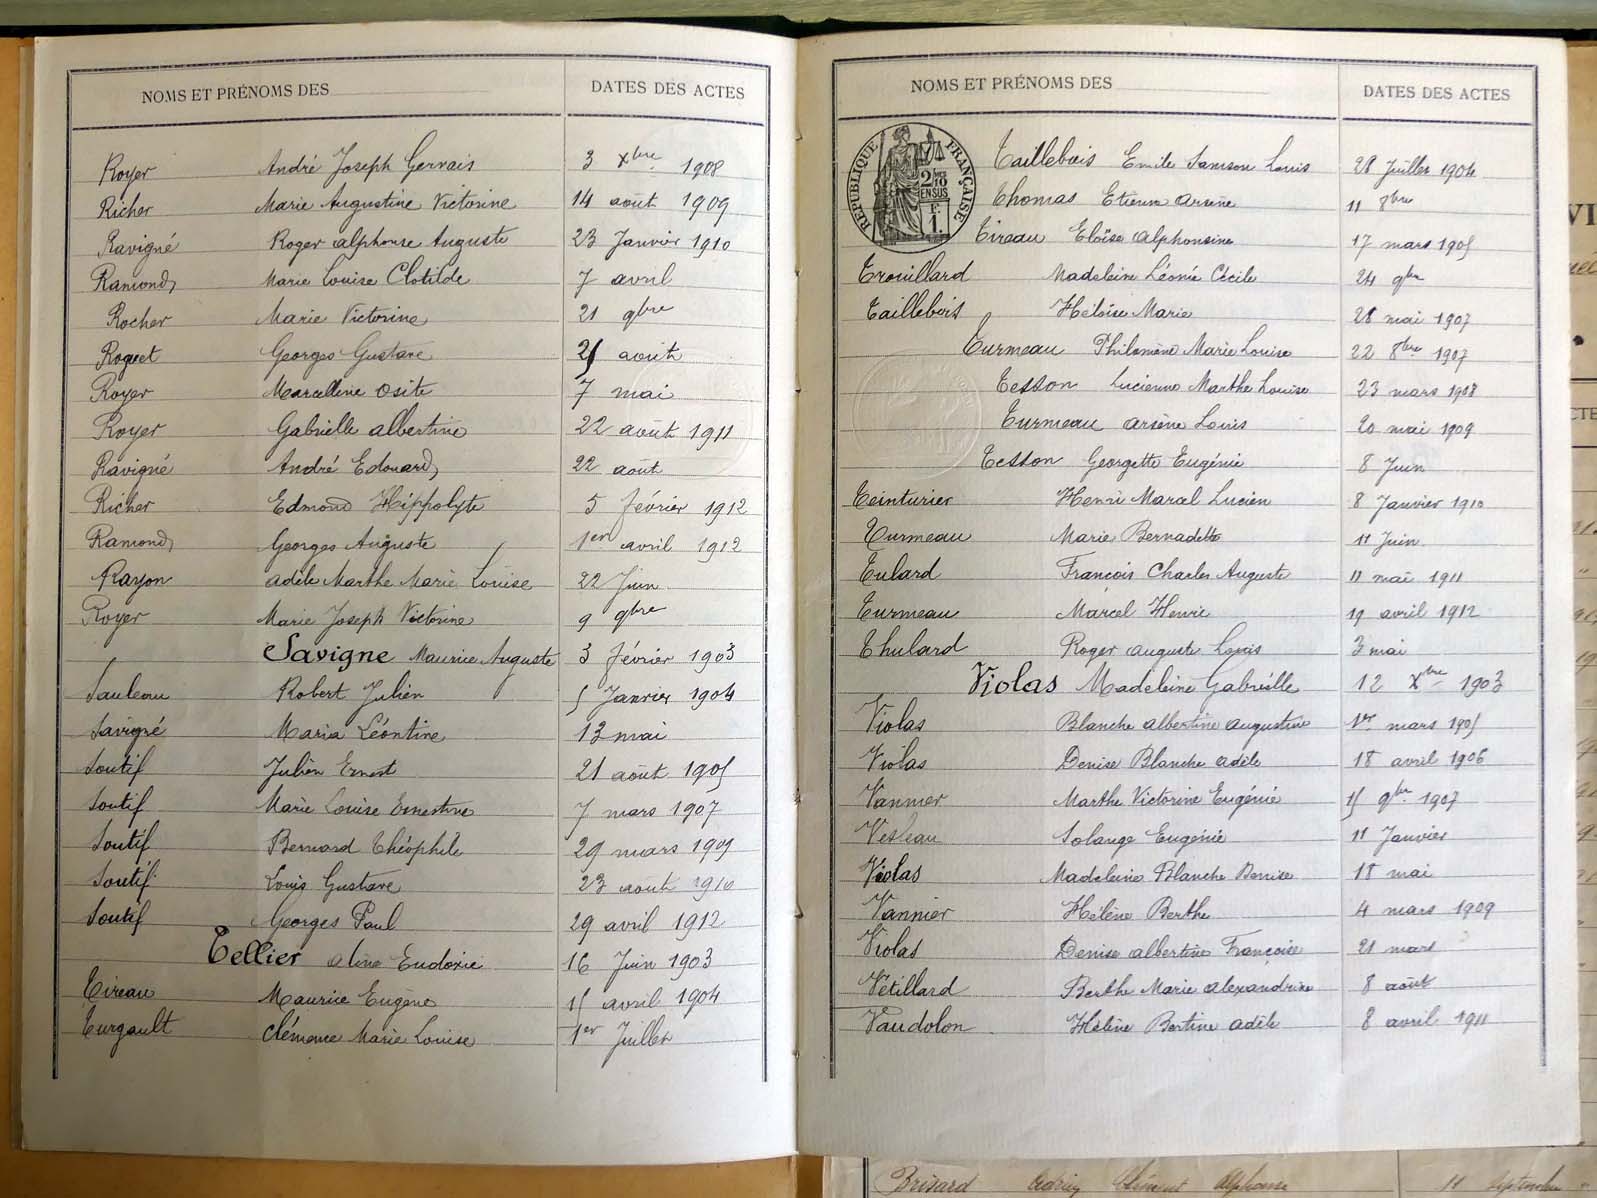 NOMS ET PRÉNOMS DES DATES DES ACTES
Royer André Joseph Gervais 3 Xbre 1908
Richer Marie Augustine Victorine 14 août 1909
Ravigné Roger alphonse Auguste 23 Janvier 1910
Ramond Marie Louise Clotilde 7 avril
Rocher Marie Victorine 21 9bre
Roguet Georges Gustave 25 août
Royer Marcelline Osite 7 mai
Royer Gabrielle albertine 22 août 1911
Ravigné André Edouard 22 août
Richer Edmond Hippolyte 5 février 1912
Ramond Georges Auguste 1er avril 1912
Rayon adèle Marthe Marie Louise 22 Juin
Royer Marie Joseph Victorine 9 9bre
Savigne Maurice Auguste 3 février 1903
Sauleau Robert Julien 5 Janvier 1904
Savigné Maria Léontine 13 mai
Soutif Julien Ernest 21 août 1905
Soutif Marie Louise Ernestine 7 mars 1907
Soutif Bernard Théophile 29 mars 1909
Soutif Louis Gustave 23 août 1910
Soutif Georges Paul 29 avril 1912
Tellier aline Eudoxie 16 Juin 1903
Tireau Maurice Eugène 15 avril 1904
Turgault Clémence Marie Louise 1er Juillet
NOMS ET PRÉNOMS DES DATES DES ACTES
RÉPUBLIQUE FRANÇAISE
2/10 EN SUS
F. 1.
Taillebois Emile Samson Louis 28 Juillet 1904
Thomas Etienne Arsène 11 8bre
Tireau Eloïse alphonsine 17 mars 1905
Trouillard Madeleine Léonie Cécile 24 9bre
Taillebois Héloïse Marie 28 mai 1907
Turmeau Philomène Marie Louise 22 8bre 1907
Tesson Lucienne Marthe Louise 23 mars 1908
Turmeau arsène Louis 20 mai 1909
Tesson Georgette Eugénie 8 Juin
Teinturier Henri Marcel Lucien 8 Janvier 1910
Turmeau Marie Bernadette 11 Juin
Tulard François Charles Auguste 11 mai 1911
Turmeau Marcel Henri 19 avril 1912
Thulard Roger auguste Louis 3 mai
Violas Madeleine Gabrielle 12 Xbre 1903
Violas Blanche albertine augustine 1er mars 1905
Violas Denise Blanche adèle 18 avril 1906
Vannier Marthe Victorine Eugénie 15 9bre 1907
Vesleau Solange Eugénie 11 Janvier
Violas Madeleine Blanche Denise 18 mai
Vannier Hélène Berthe 4 mars 1909
Violas Denise albertine Françoise 21 mars
Vétillard Berthe Marie alexandrine 8 août
Vaudolon Hélène Bertine adèle 8 avril 1911
Brisard Clément Alphonse 11 Septembre